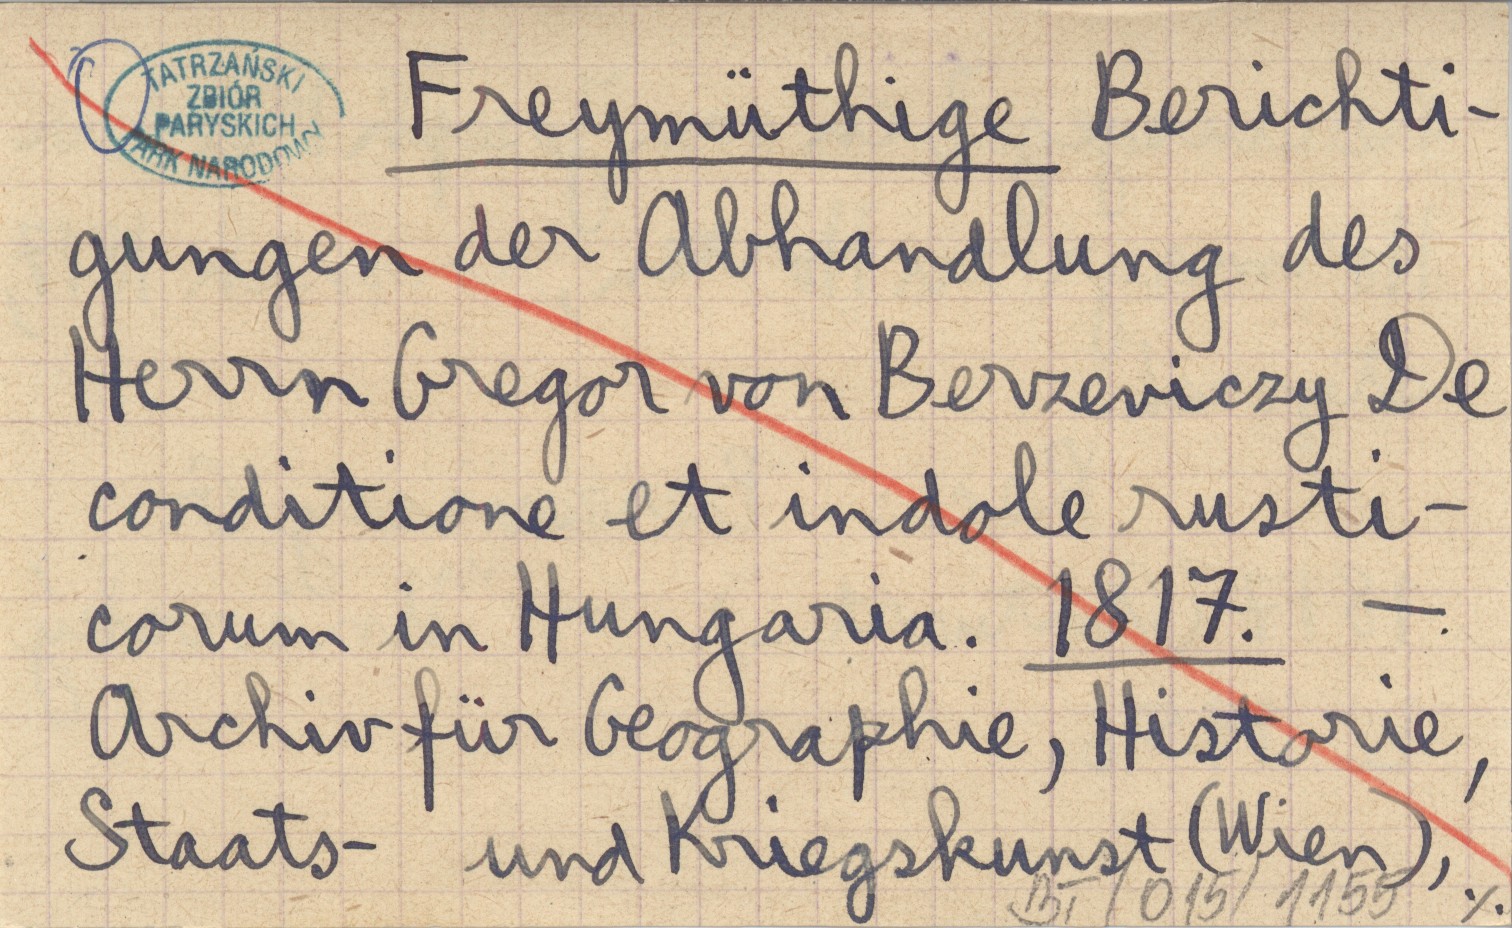 TATRZAŃSKI
ZBIÓR
PARYSKICH
ARK NARODOWY
Freymüthige Berichti-
gungen der Abhandlung des
Herrn Gregor von Berzeviczy De
conditione et indole rusti-
corum in Hungaria. 1817. —.
Archiv für Geographie, Historie,
Staats- und Kriegskunst (Wien),
BT/015/1155 ./.